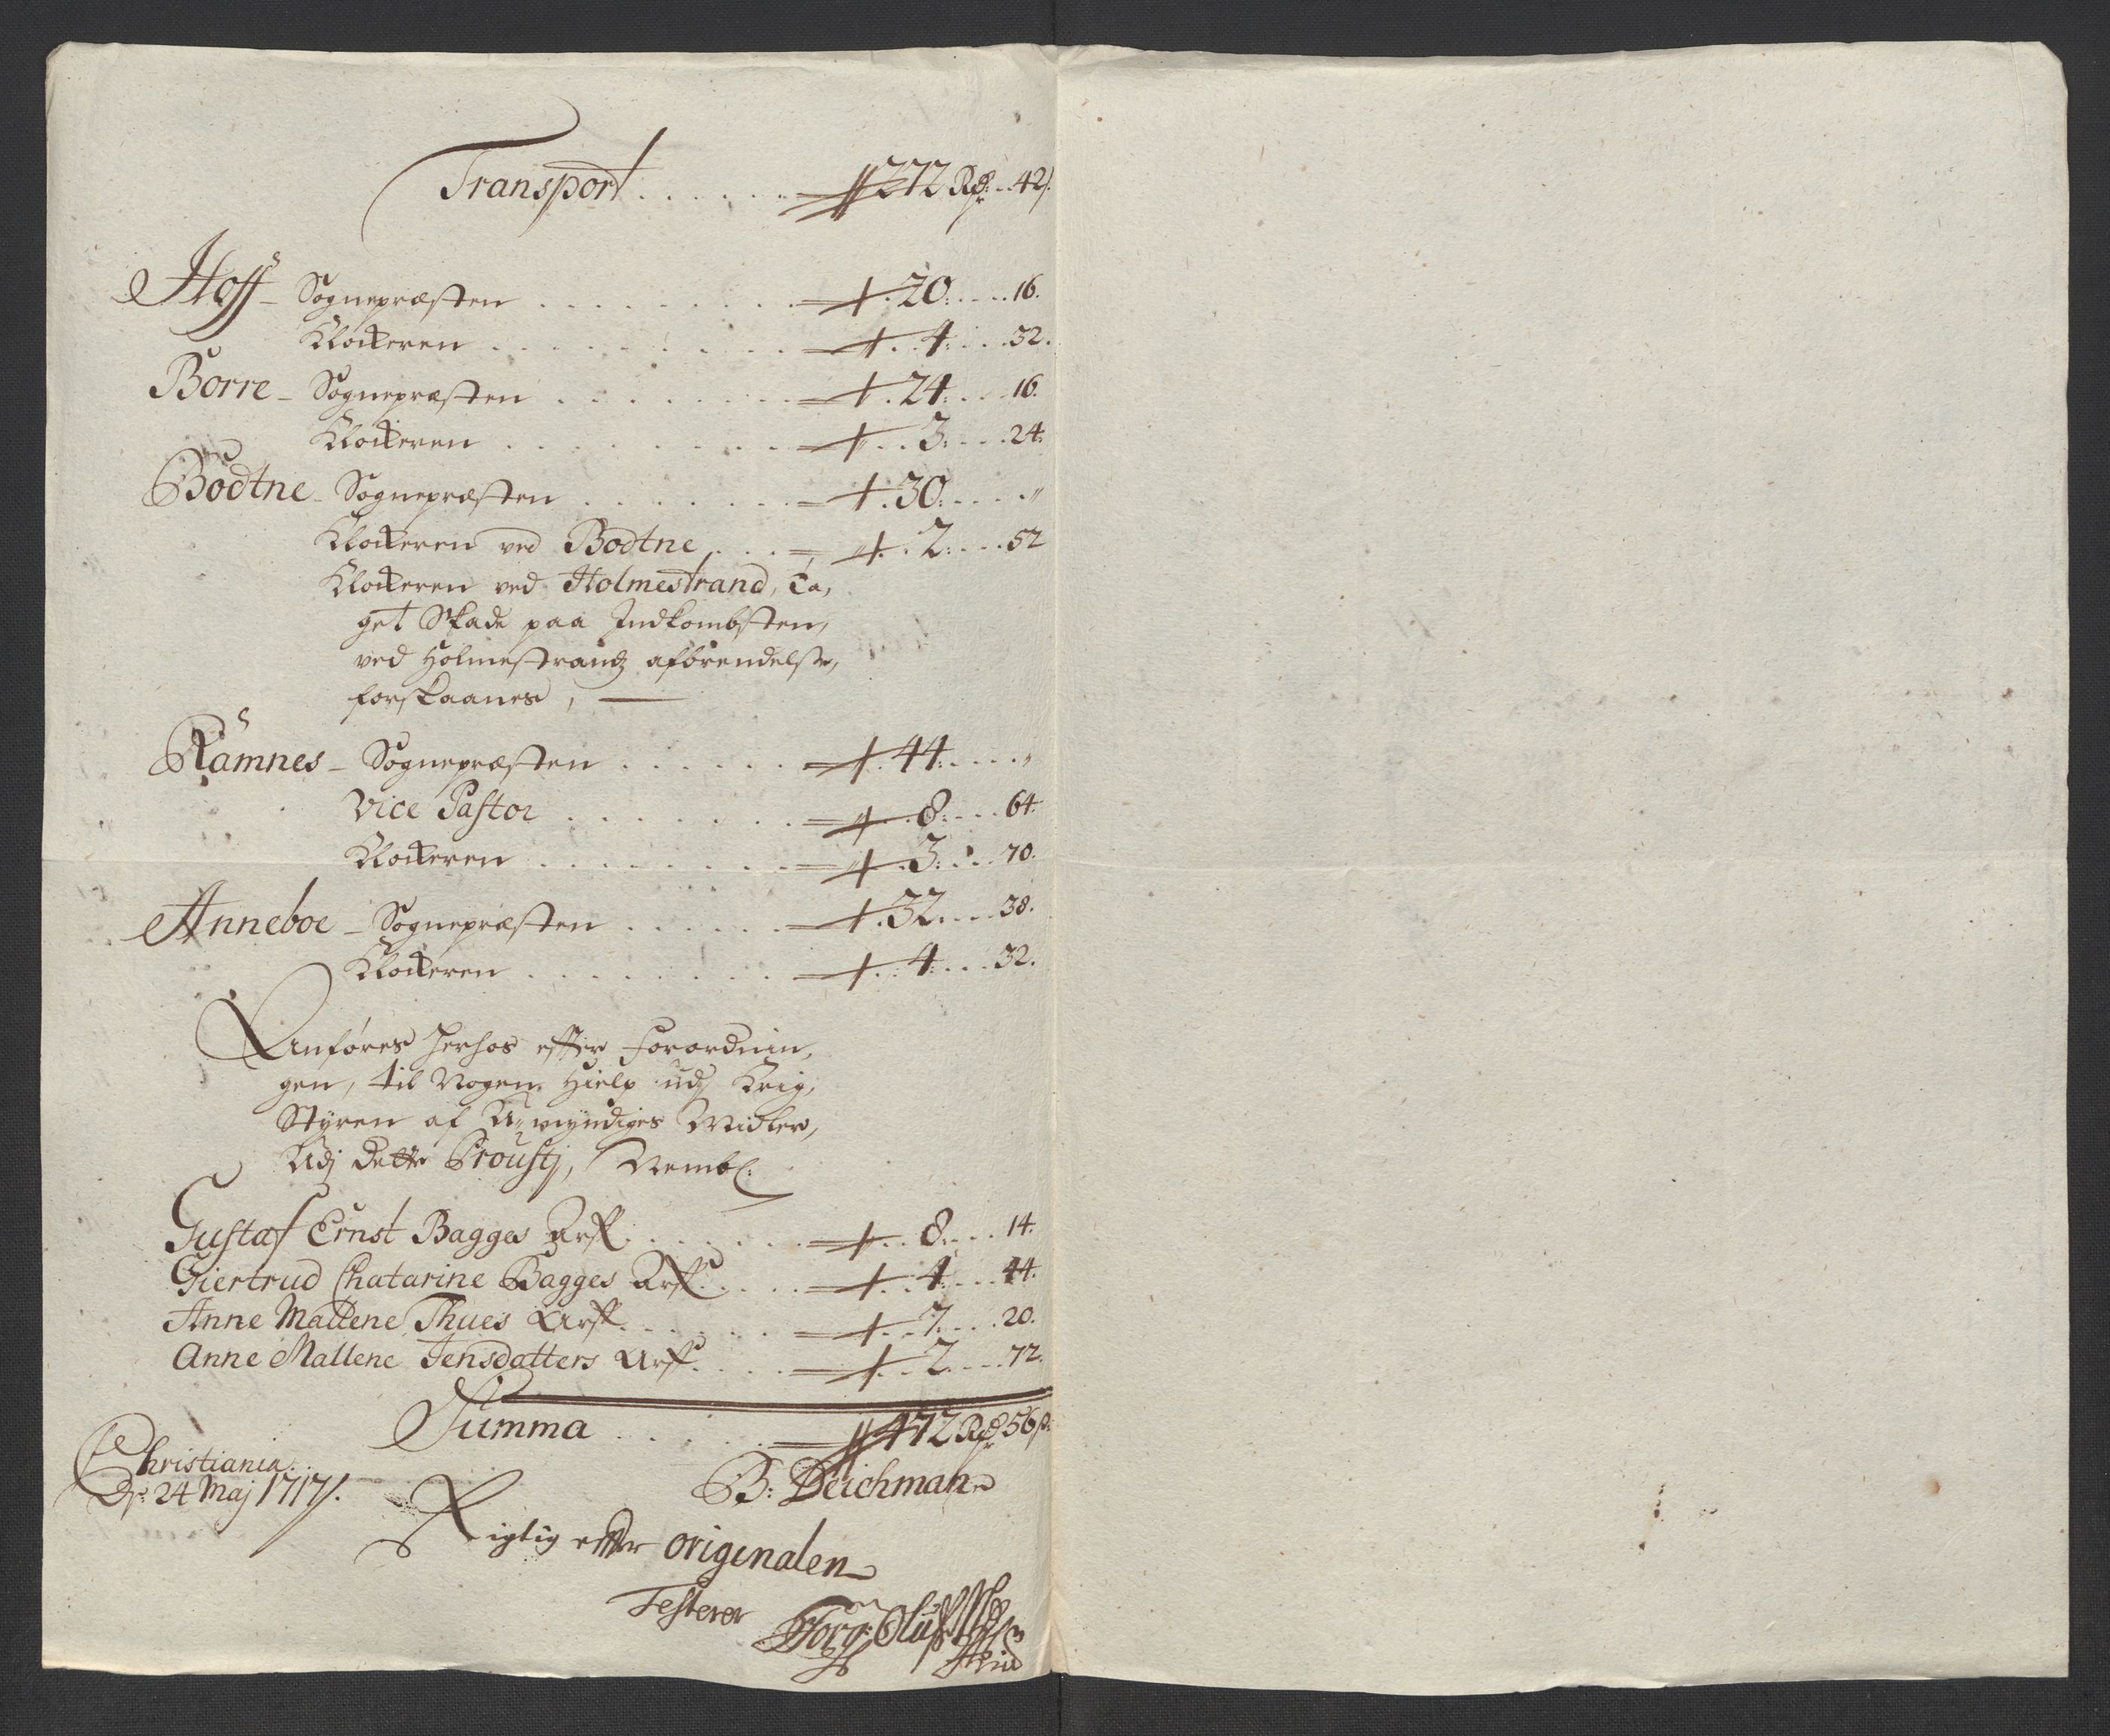 Transport . . . . . . 272 Rdr. . 42ß.
Hoff - Sognepræsten . . . . . . . . . 20: . . . . 16.
Klockeren . . . . . . . . . 4: . . . . 32.
Borre - Sognepræsten . . . . . . . . 24: . . . 16.
Klockeren . . . . . . . . 3: . . . . 24.
Bodtne - Sognepræsten . . . . . . . 30: . . . . "
Klockeren ved Bodtne . . . 2: . . . 52
Klockeren ved Holmestrand, ta,
get Skade paa Indkombsten,
ved Holmestrands afbrendelse,
forskaanes, —
Ramnes - Sognepræsten . . . . . . 44: . . . . "
Vice Pastor . . . . . . 8: . . . 64.
Klockeren . . . . . . . . 3: . . . 70.
Anneboe - Sognepræsten . . . . . . 32: . . . 38.
Klockeren . . . . . . . . 4: . . . 32.
Anføres herhos efter Forordnin,
gen, til Nogen Hielp udj Krig,
Styren af U-myndiges Midler,
Udj dette Proustj, Nembl:
Gustaf Ernst Bagges Arff . . . . . . 8: . . . 14.
Giertrud Chatarine Bagges Arff . . . . 4: . . . 44.
Anne Mallene Thues Arff . . . . . . 7: . . . 20.
Anne Mallene Jensdatters Arff . . . . 2: . . . 72.
Summa . . . . . 472 Rdr 56ß:
Christiania
Dr: 24 Maj 1717.
B: Deichman
Rigtig efter originalen
Testerer